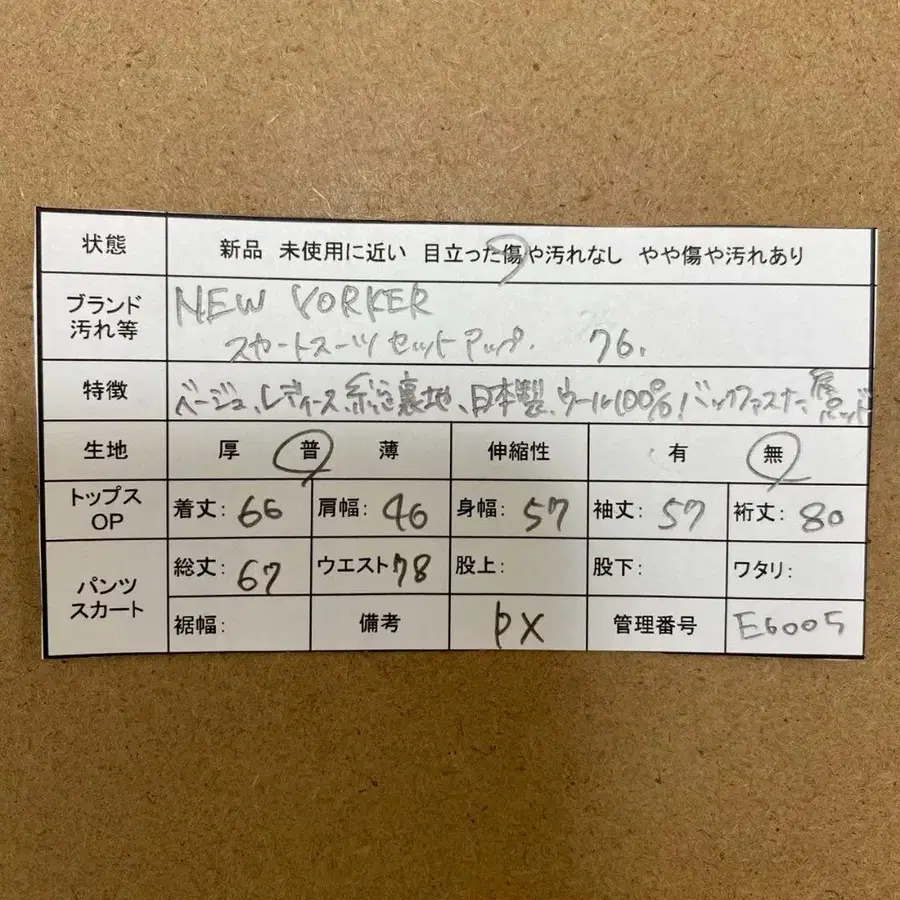 状態 新品 未使用に近い 目立った傷や汚れなし やや傷や汚れあり
ブランド 汚れ等 NEW YORKER
スカートスーツ セットアップ. 76.
特徴 ベージュ、レディース 総裏地、日本製、ウール100%! バックファスナー、肩パッド
生地 厚 普 薄 伸縮性 有 無
トップス OP 着丈: 66 肩幅: 46 身幅: 57 袖丈: 57 裄丈: 80
パンツ スカート 総丈: 67 ウエスト 78 股上: 股下: ワタリ:
裾幅: 備考 PX 管理番号 E6005